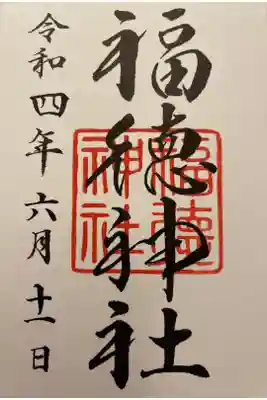 福徳神社
福徳
神社
令和四年六月十一日